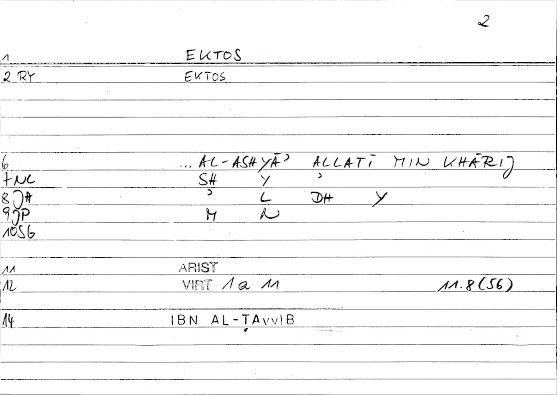 2
1 EKTOS
2 RY EKTOS
6 ...AL-ASHYĀʾ ALLATĪ MIN KHĀRIJ
7 NL SH Y ʾ
8 JA ʾ L DH Y
9 JP M N
10 SG
11 ARIST
12 VIRT 1a 11 11.8(56)
14 IBN AL-ṬAYYIB